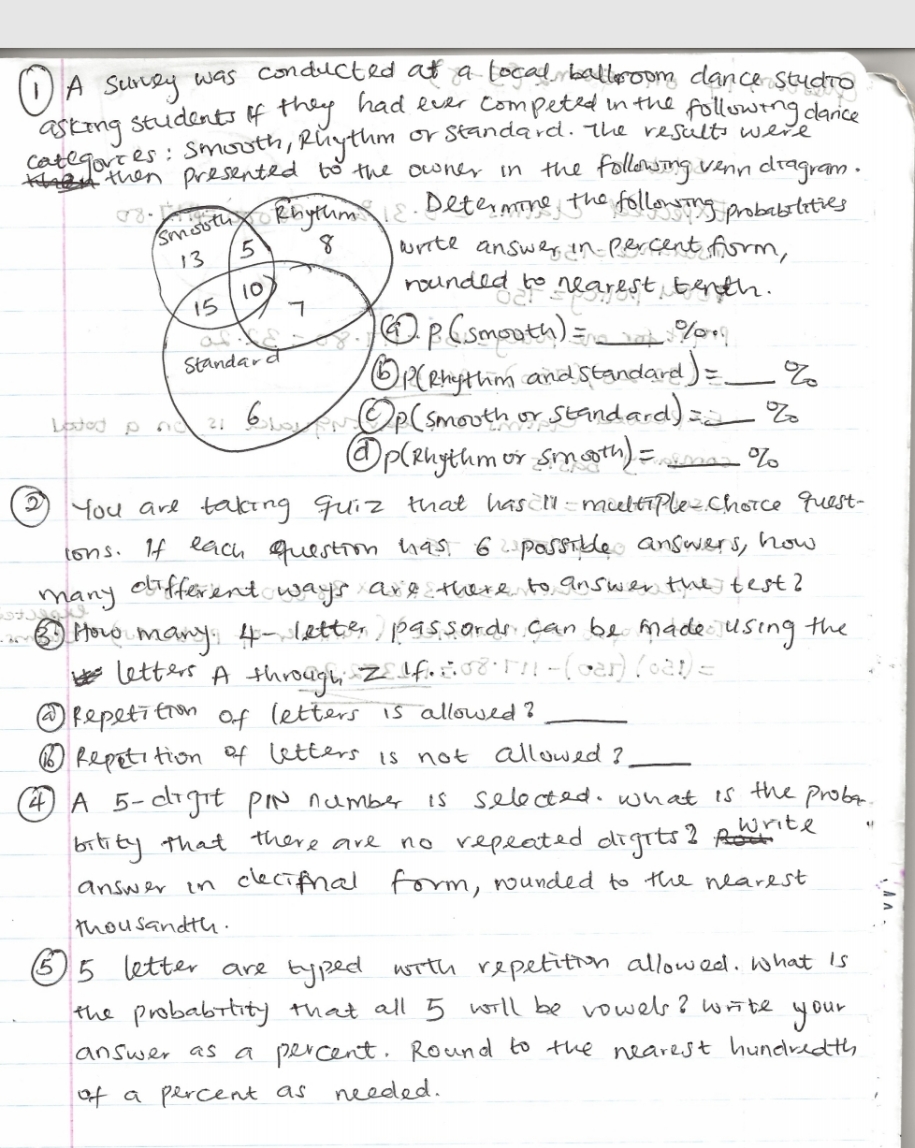 ① A survey was conducted at a local ballroom dance studio
asking students if they had ever competed in the following dance
categories: smooth, Rhythm or standard. The results were
then presented to the owner in the following venn diagram.
Determine the following probabilities
write answer in percent form,
rounded to nearest tenth.
Smooth
Rhythm
13
5
8
15
10
7
Standard
6
ⓐ P(smooth) = ____ %.
ⓑ P(Rhythm and Standard) = ___ %
ⓒ p(smooth or standard) = ___ %
ⓓ p(Rhythm or smooth) = ____ %
② You are taking quiz that has 11-multiple-choice quest-
ions. If each question has 6 possible answers, how
many different ways are there to answer the test?
③ How many 4-letter passords can be made using the
letters A through Z if.
ⓐ Repetition of letters is allowed? ____
ⓑ Repetition of letters is not allowed? ____
④ A 5-digit PIN number is selected. what is the proba-
bility that there are no repeated digits? Write
answer in decimal form, rounded to the nearest
thousandth.
⑤ 5 letter are typed with repetition allowed. What is
the probability that all 5 will be vowels? Write your
answer as a percent. Round to the nearest hundredth
of a percent as needed.